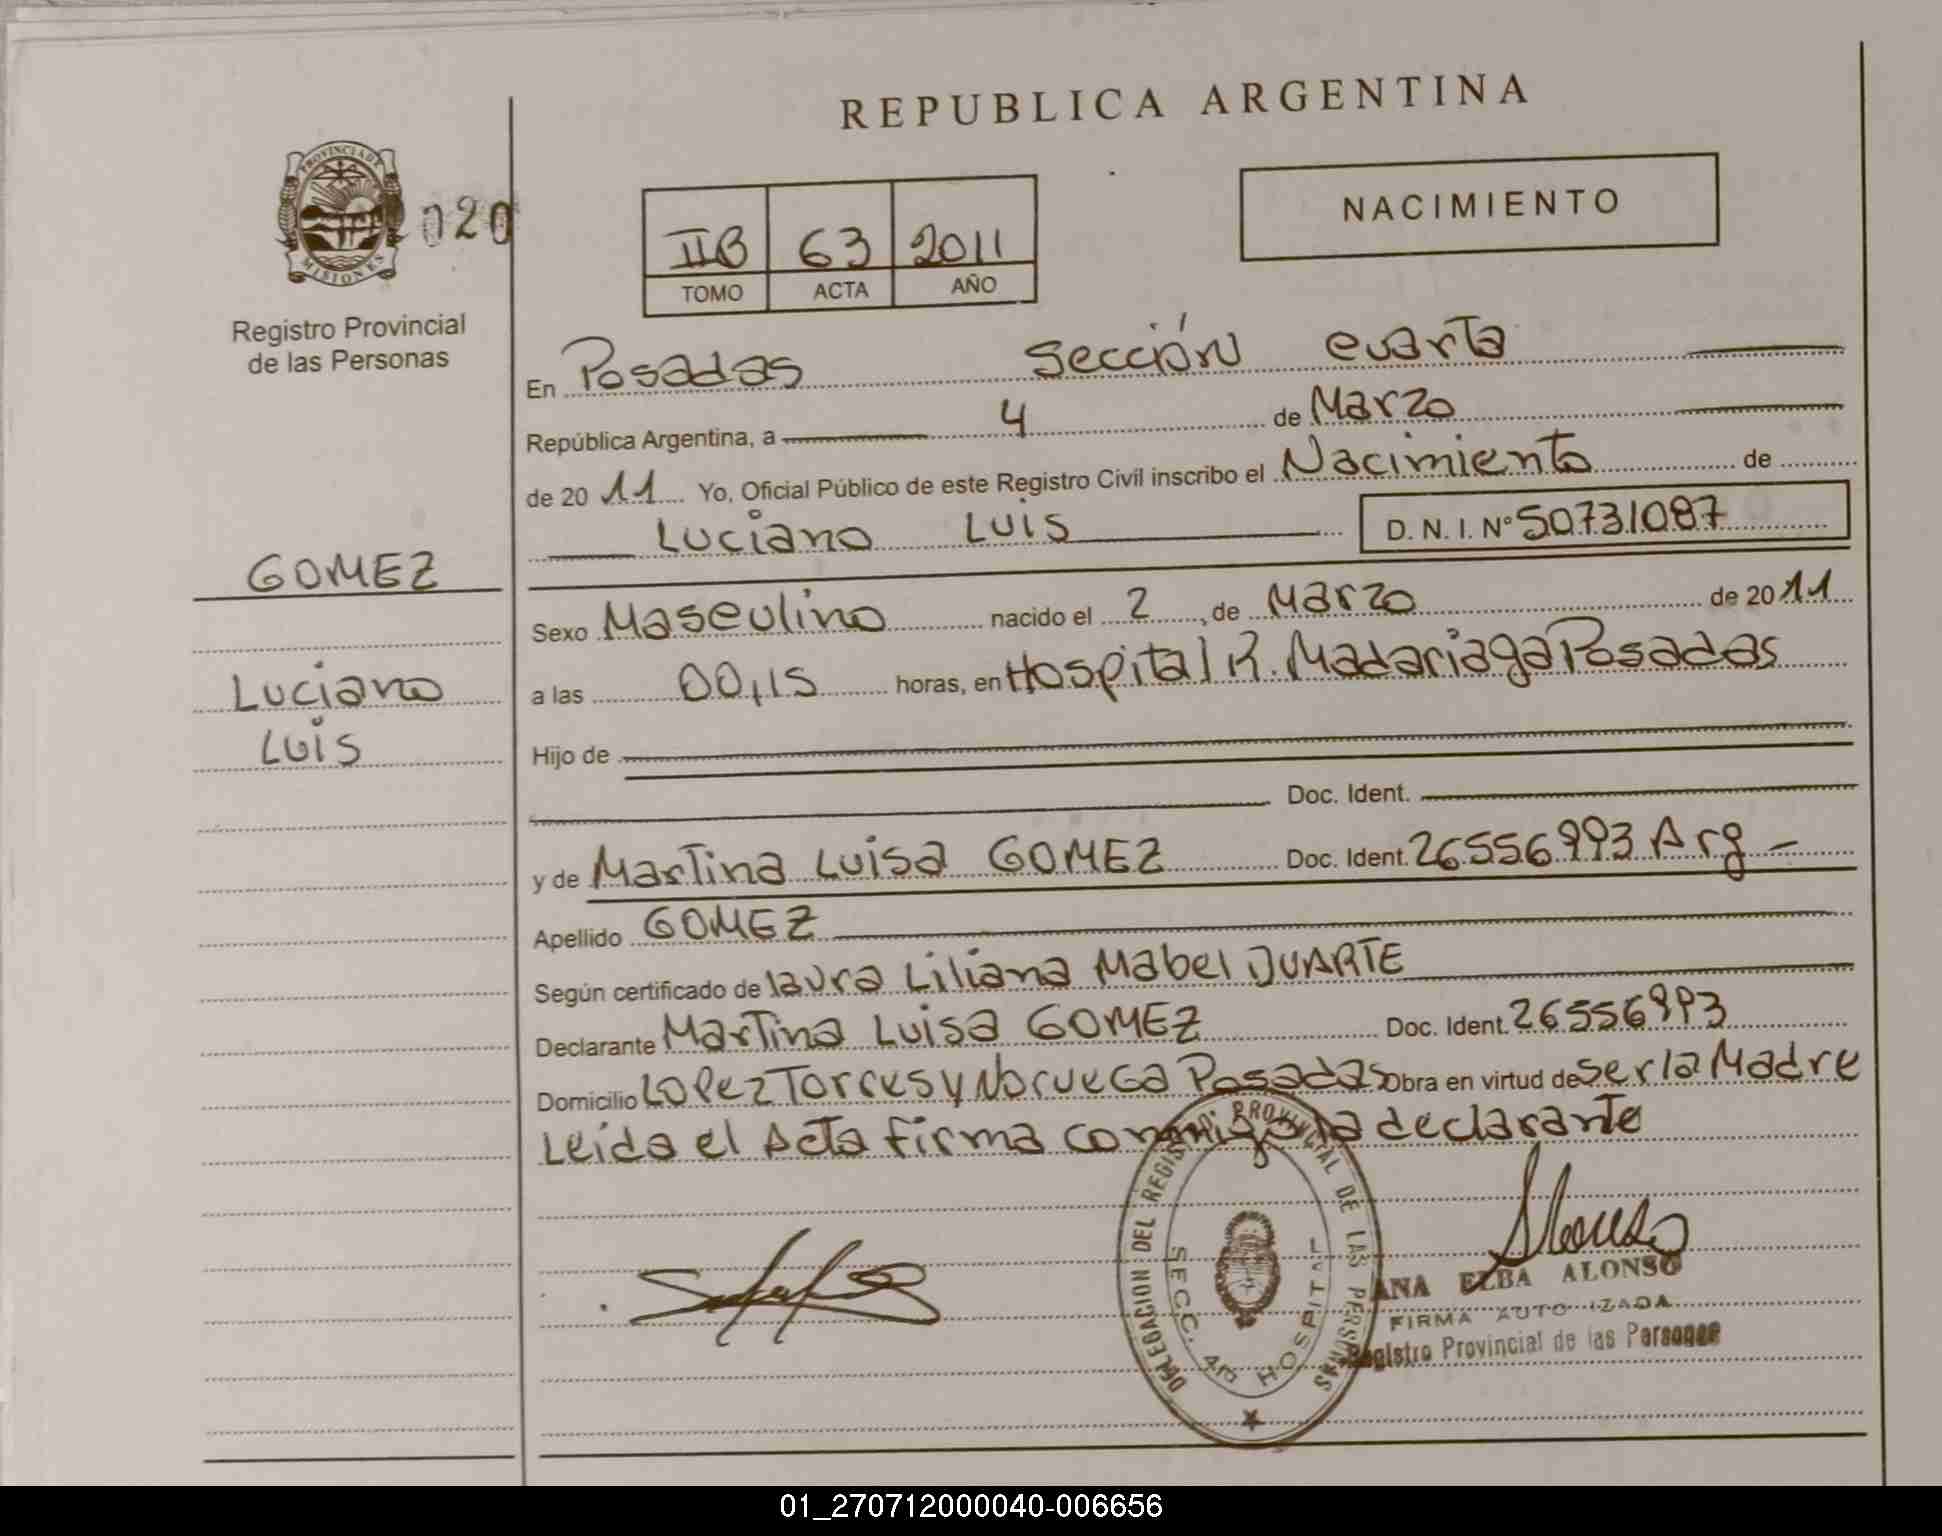 REPUBLICA ARGENTINA
PROVINCIA DE MISIONES
020
Registro Provincial
de las Personas
NACIMIENTO
IIB 63 2011
TOMO ACTA AÑO
En Posadas Sección cuarta
República Argentina, a 4 de Marzo
de 20 11 Yo, Oficial Público de este Registro Civil inscribo el Nacimiento de
Luciano Luis D. N. I. Nº 50731087
GOMEZ
Luciano
Luis
Sexo Masculino nacido el 2, de Marzo de 20 11
a las 00,15 horas, en Hospital R. Madariaga Posadas
Hijo de
Doc. Ident.
y de Martina Luisa GOMEZ Doc. Ident. 26556993 Arg -
Apellido GOMEZ
Según certificado de Laura Liliana Mabel DUARTE
Declarante Martina Luisa GOMEZ Doc. Ident. 26556993
Domicilio Lopez Torres y Noruega Posadas Obra en virtud de ser la Madre
Leida el Acta firma conmigo la declarante
DELEGACION DEL REGISTRO PROVINCIAL DE LAS PERSONAS
SECC. 4ta HOSPITAL
ANA ELBA ALONSO
FIRMA AUTORIZADA
Registro Provincial de las Personas
01_270712000040-006656